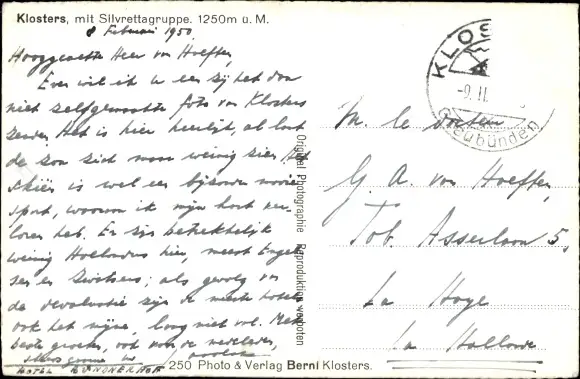 Klosters, mit Silvrettagruppe. 1250m ü. M.
8 Februari 1950.
Hooggeachte Heer von Hoeften,
Even wil ik U een zij het dan
niet zelfgemaakte foto van Klosters
zenden. Het is hier heerlijk, al laat
de zon zich maar weinig zien. Het
skiën is wel een bijzonder mooie
sport, waaraan ik mijn hart ver-
loren heb. Er zijn betrekkelijk
weinig Hollanders hier, meest Engel-
sen en Zwitsers; als gevolg van
de devaluatie zijn de meeste hotels
ook het mijne, lang niet vol. Met
beste groeten, ook voor de
HOTEL
250 Photo & Verlag Berni Klosters.
Original Photographie Reproduktion verboten
KLOS
-9. II.
Graubünden
M. le
G. A. von Hoeften,
Tob. Asserlaan 5,
La Haye
La Hollande